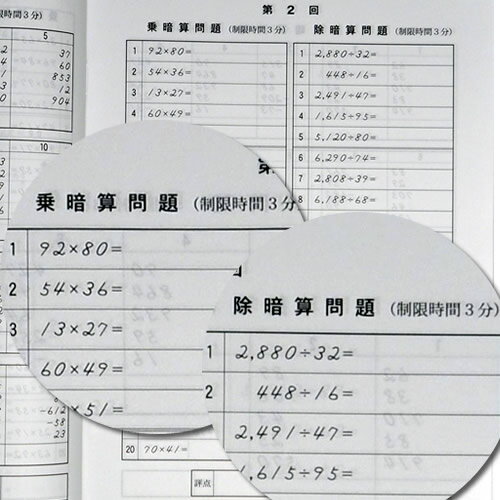 5
37
60
853
12
904
10
第 2 回
乗暗算問題 (制限時間3分)
1 92×80=
2 54×36=
3 13×27=
4 60×49=
20 70×41=
除暗算問題 (制限時間3分)
1 2,880÷32=
2 448÷16=
3 2,491÷47=
4 1,615÷95=
5 5,120÷80=
6 6,290÷74=
7 2,808÷39=
8 6,188÷68=
乗暗算問題 (制限時間3分
1 92×80=
2 54×36=
3 13×27=
60×49=
×51=
除暗算問題 (制限時間3
1 2,880÷32=
2 448÷16=
2,491÷47=
1,615÷95=
-612
-58
23
評点